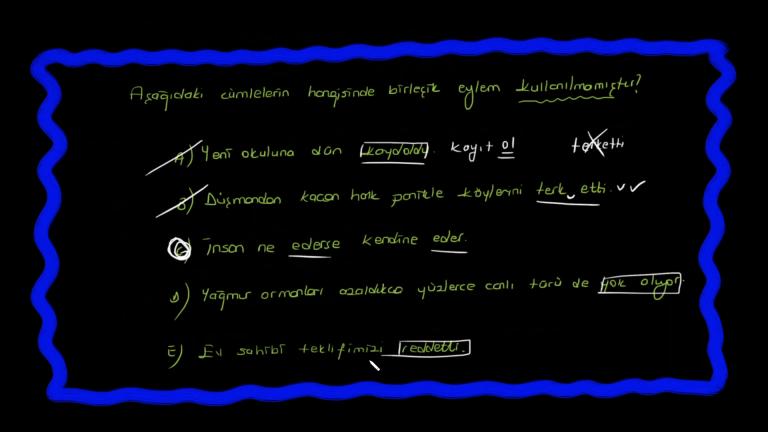 Aşağıdaki cümlelerin hangisinde birleşik eylem kullanılmamıştır?
A) Yeni okuluna dün kaydoldu. kayıt ol terketti
B) Düşmandan kaçan halk panikle köylerini terk etti.
C) İnsan ne ederse kendine eder.
D) Yağmur ormanları azaldıkca yüzlerce canlı türü de yok oluyor.
E) Ev sahibi teklifimizi reddetti.